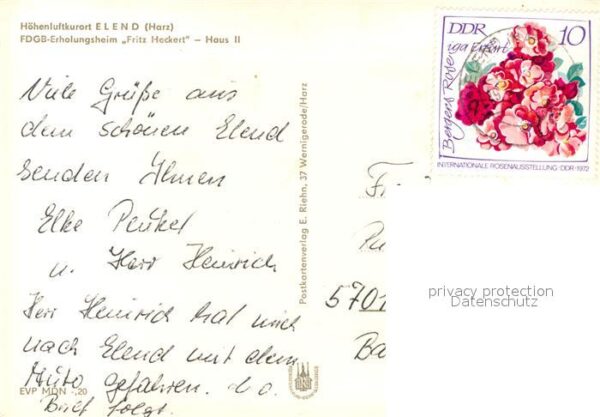 Höhenluftkurort ELEND (Harz)
FDGB-Erholungsheim „Fritz Heckert" – Haus II
Viele Grüße aus
dem schönen Elend
senden Ihnen
Elke
u. Herr Heinrich
Herr Heinrich hat mich
nach Elend mit dem
Auto gefahren.
Brief folgt.
EVP MDN -,20
Postkartenverlag E. Riehn, 37 Wernigerode/Harz
DDR 10
iga Erfurt
Bergers Rose
INTERNATIONALE ROSENAUSSTELLUNG · DDR · 1972
5701
privacy protection
Datenschutz